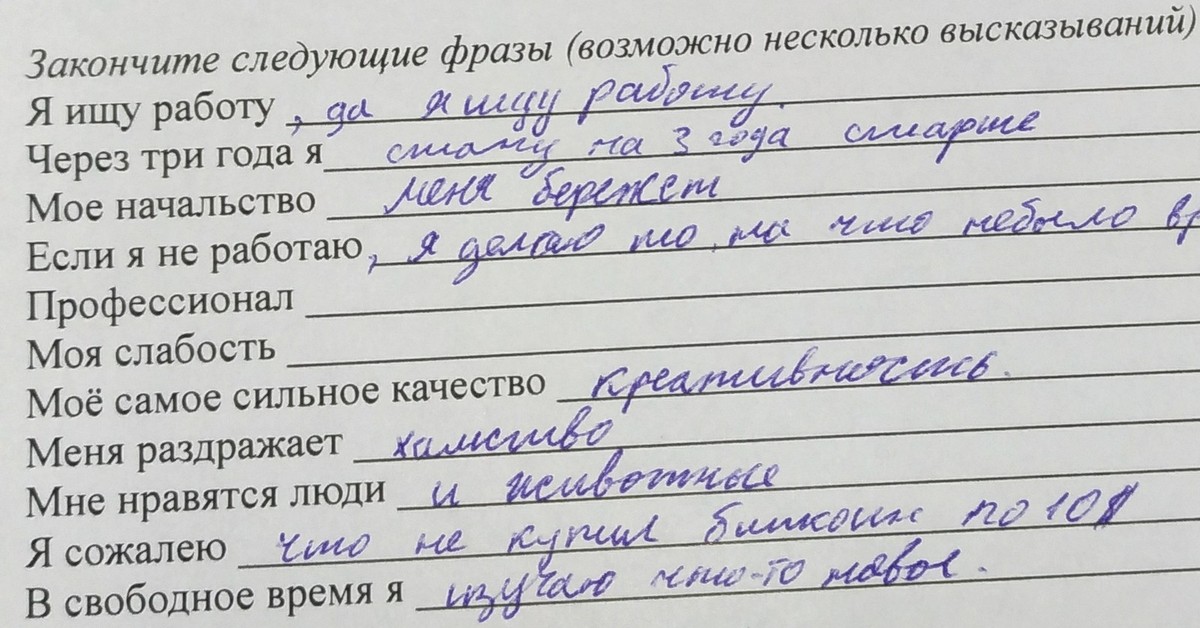 Закончите следующие фразы (возможно несколько высказываний)
Я ищу работу , да я ищу работу.
Через три года я стану на 3 года старше
Мое начальство меня бережет
Если я не работаю, я делаю то на что небыло вр
Профессионал
Моя слабость
Моё самое сильное качество креативность.
Меня раздражает хамство
Мне нравятся люди и животные
Я сожалею что не купил биткоин по 10$
В свободное время я изучаю что-то новое.